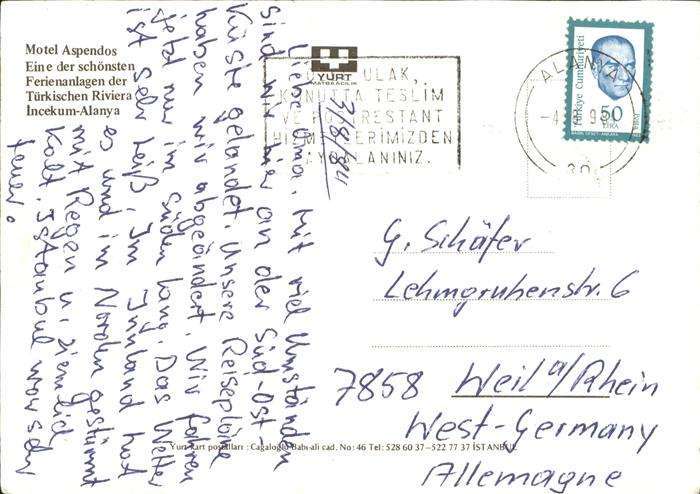 Motel Aspendos
Eine der schönsten
Ferienanlagen der
Türkischen Riviera
İncekum-Alanya
3/8/84
Liebe Oma, Mit viel Umständen
sind wir hier an der Süd-Ost-
Küste gelandet. Unsere Reisepläne
haben wir abgeändert. Wir fahren
jetzt nur im Süden lang. Das Wetter
ist sehr heiß. Im Inland hat
es und im Norden gestürmt
mit Regen u. ziemlich
kalt. Istanbul war sehr
teuer.
YURT
MATBAACILIK
ULAK,
KONUTTA TESLİM
VE POSTRESTANT
HİZMETLERİMİZDEN
YARARLANINIZ.
ALANYA
Türkiye Cumhuriyeti
50
LİRA
G. Schäfer
Lehmgrubenstr. 6
7858 Weil a/Rhein
West-Germany
Allemagne
Yurt kart postalları : Cağaloğlu Babıali cad. No: 46 Tel: 528 60 37-522 77 37 İSTANBUL